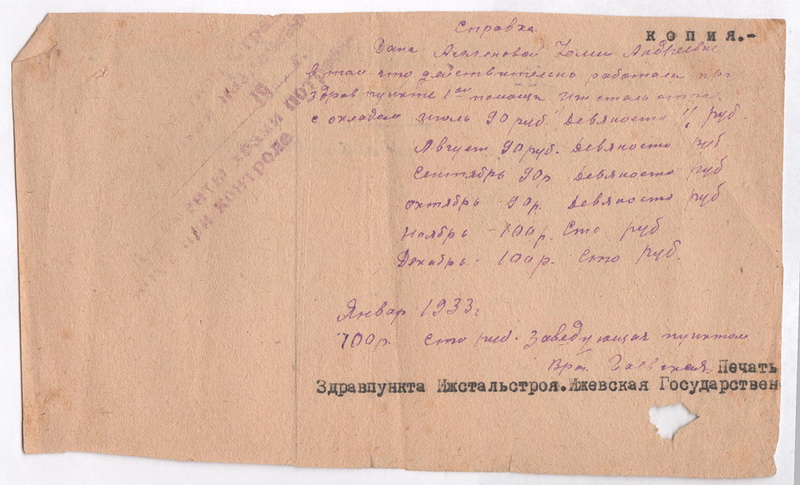 Справка
КОПИЯ.-
Дана Андреевне
в том что действительно работала при
Здравпункте 1ой помощи Ижстальстроя
с окладом июль 90 руб. Девяносто руб
Август 90 руб. Девяносто руб
Сентябрь 90р Девяносто руб
октябрь 90р. Девяносто руб
Ноябрь - 100р. Сто руб
Декабрь - 100р. Сто руб.
Январ 1933г
100р. Сто руб. Заведующая пунктом
Врач Печать
Здравпункта Ижстальстроя.Ижевская Государствен
при контроле